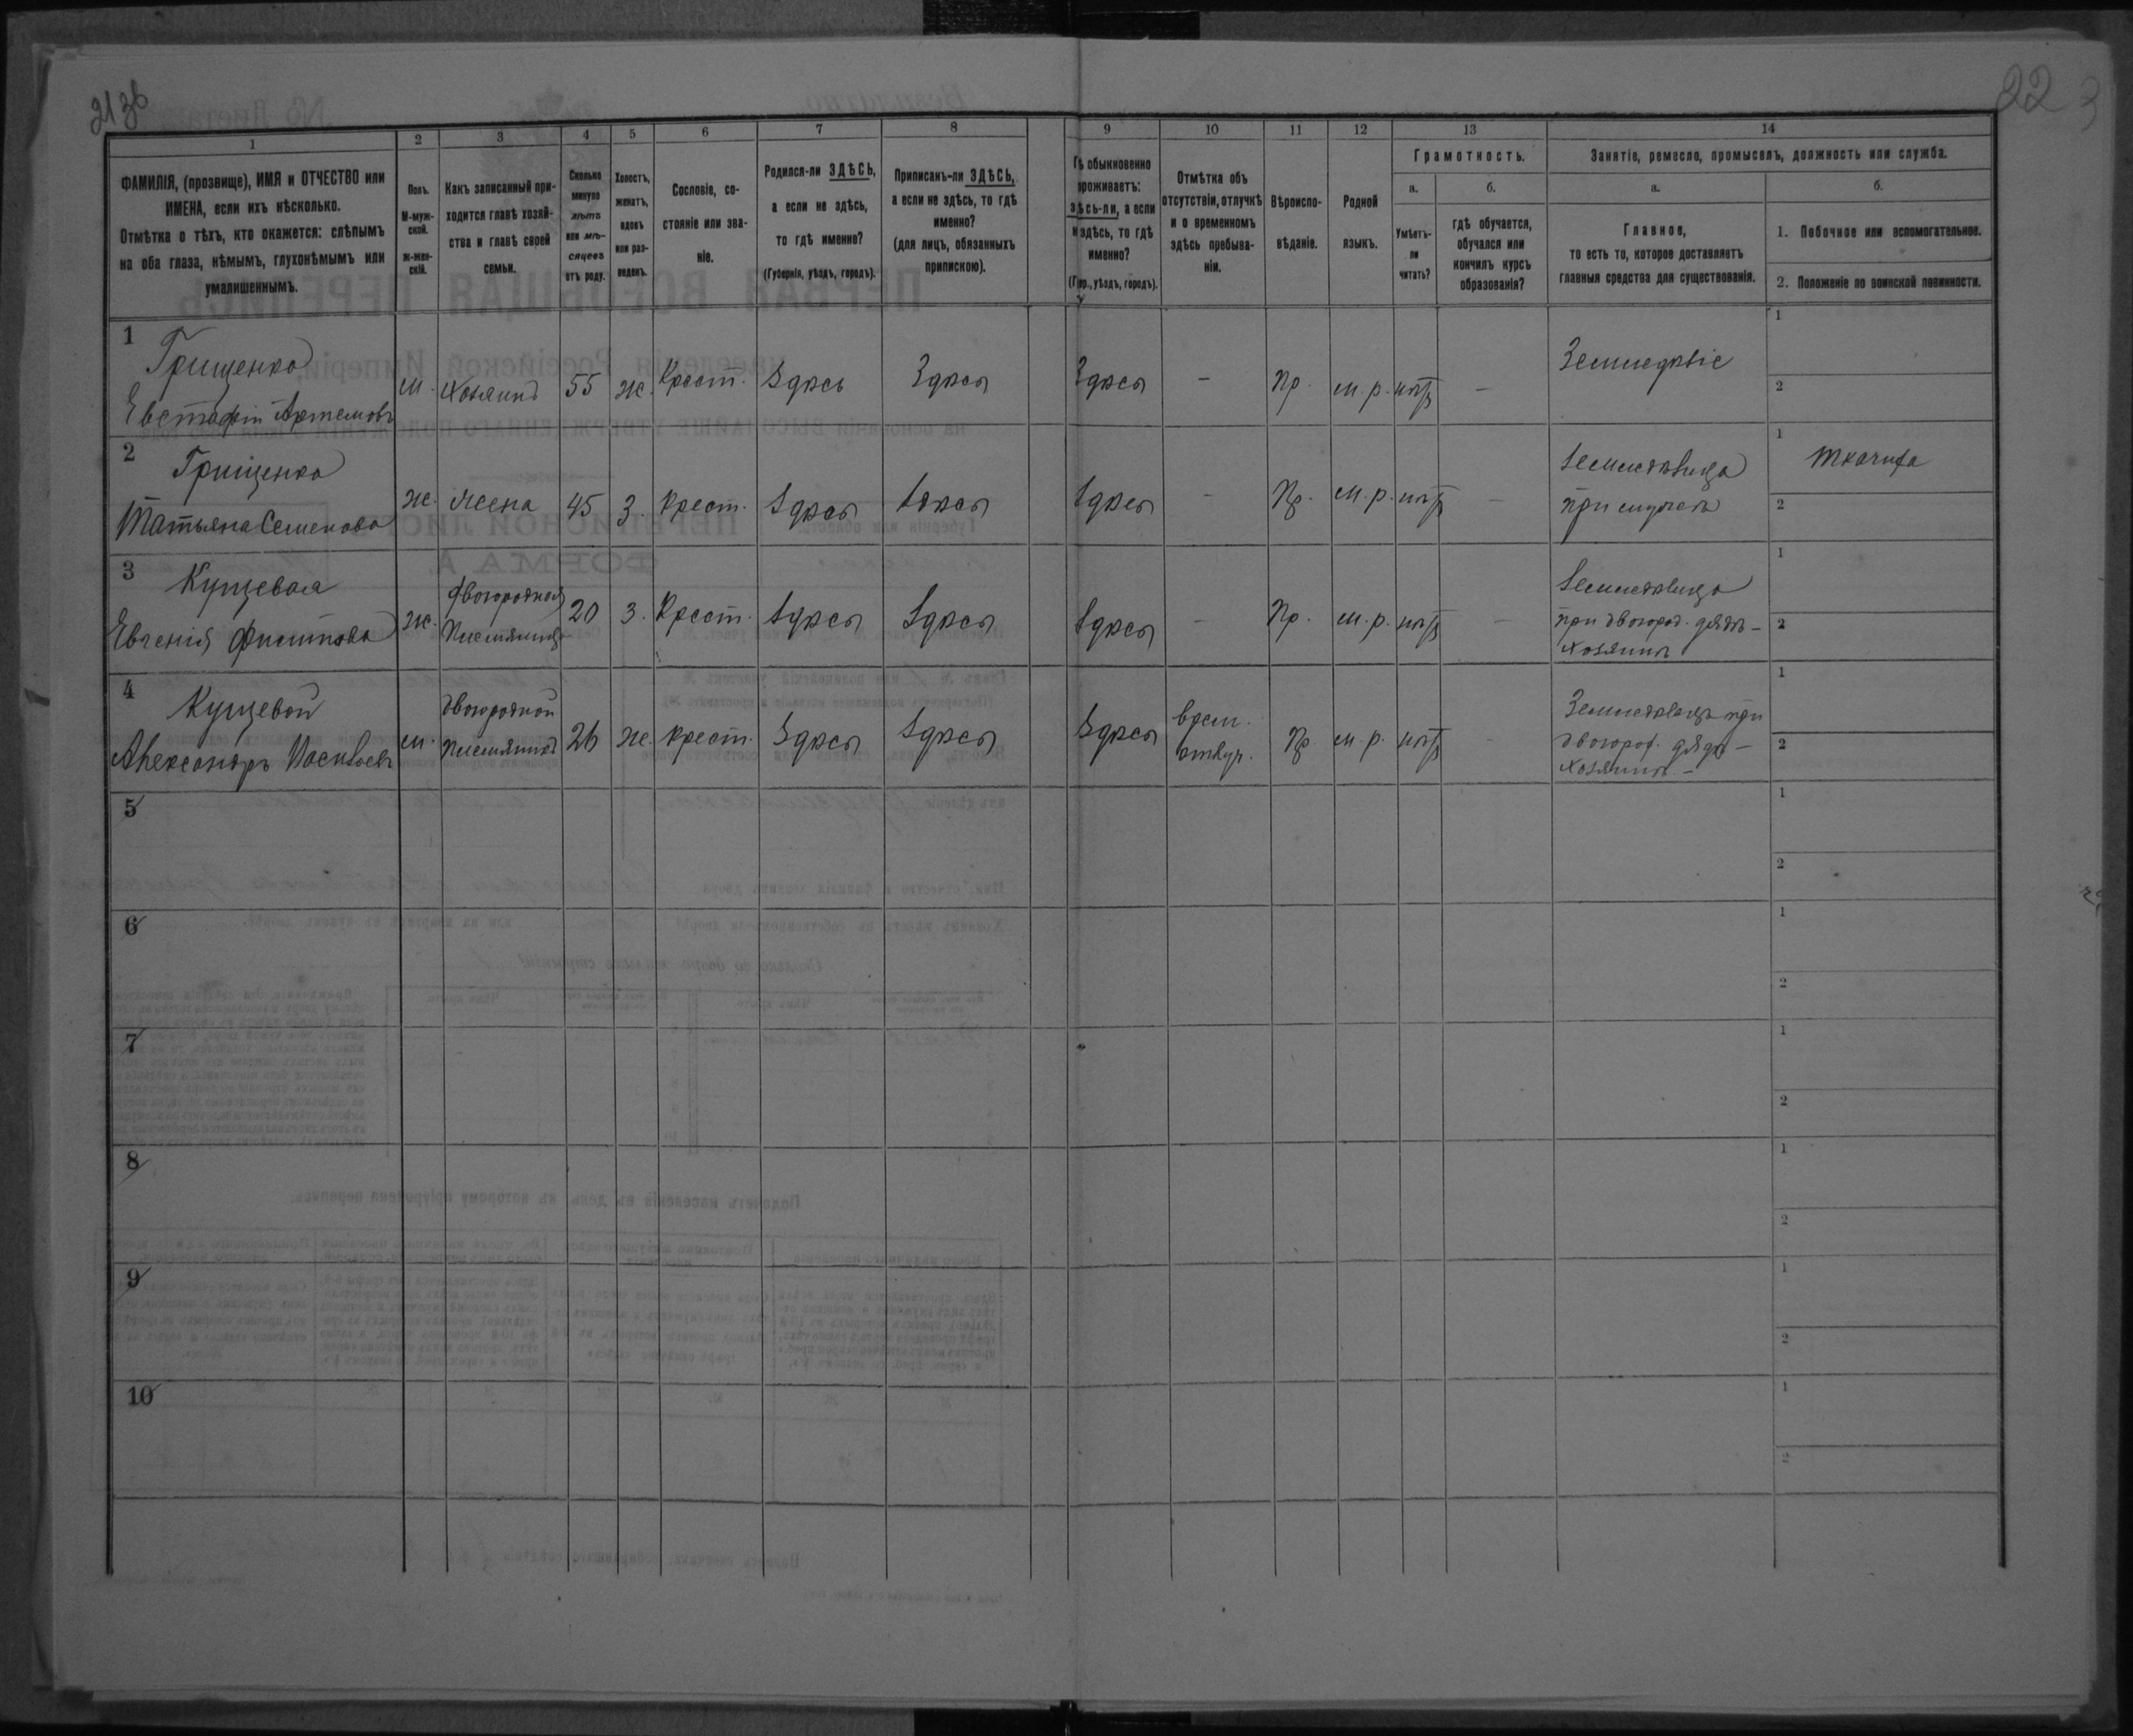 21зв
22
3
1
2
3
4
5
6
7
8
9
10
11
12
13
14
ФАМИЛІЯ, (прозвище), ИМЯ и ОТЧЕСТВО или
ИМЕНА, если ихъ нѣсколько.
Отмѣтка о тѣхъ, кто окажется: слѣпымъ
на оба глаза, нѣмымъ, глухонѣмымъ или
умалишеннымъ.
Полъ.
М-муж-
ской.
ж-жен-
скій.
Какъ записанный при-
ходится главѣ хозяй-
ства и главѣ своей
семьи.
Сколько
минуло
лѣтъ
или мѣ-
сяцевъ
отъ роду.
Холостъ,
женатъ,
вдовъ
или раз-
веденъ.
Сословіе, со-
стояніе или зва-
ніе.
Родился-ли ЗДѢСЬ,
а если не здѣсь,
то гдѣ именно?
(Губернія, уѣздъ, городъ).
Приписанъ-ли ЗДѢСЬ,
а если не здѣсь, то гдѣ
именно?
(для лицъ, обязанныхъ
припискою).
Гѣ обыкновенно
проживаетъ:
здѣсь-ли, а если
н здѣсь, то гдѣ
именно?
(Гор., уѣздъ, городъ).
Отмѣтка объ
отсутствіи, отлучкѣ
и о временномъ
здѣсь пребыва-
ніи.
Вѣроиспо-
вѣданіе.
Родной
языкъ.
Грамотность.
а.
Умѣетъ-
ли
читать?
б.
гдѣ обучается,
обучался или
кончилъ курсъ
образованія?
Занятіе, ремесло, промыселъ, должность или служба.
а.
Главное,
то есть то, которое доставляетъ
главныя средства для существованія.
б.
1. Побочное или вспомогательное.
2. Положеніе по воинской повинности.
1
Грищенко
Евстафій Артемовъ
м.
хозяинъ
55
ж.
Крест.
Здѣсь
Здѣсь
Здѣсь
-
Пр.
м.р.
нѣтъ
-
Земледѣліе
1
2
2
Грищенко
Татьяна Семенова
ж.
жена
45
з.
крест.
Здѣсь
Здѣсь
Здѣсь
-
Пр.
м.р.
нѣтъ
-
Земледѣлица
при мужѣ
1
ткачиха
2
3
Кущевая
Евгенія Филипова
ж.
двоюродная
племяница
20
з.
Крест.
Здѣсь
Здѣсь
Здѣсь
-
Пр.
м.р.
нѣтъ
-
Земледѣлица
при двоюрод. дядѣ-
хозяинѣ
1
2
4
Кущевой
Александръ
м.
двоюродной
племянникъ
26
ж.
крест.
Здѣсь
Здѣсь
Здѣсь
врем.
отлуч.
Пр.
м.р.
нѣтъ
-
Земледѣлецъ при
двоюрод. дядѣ-
хозяинѣ -
1
2
5
1
2
6
1
2
7
1
2
8
1
2
9
1
2
10
1
2